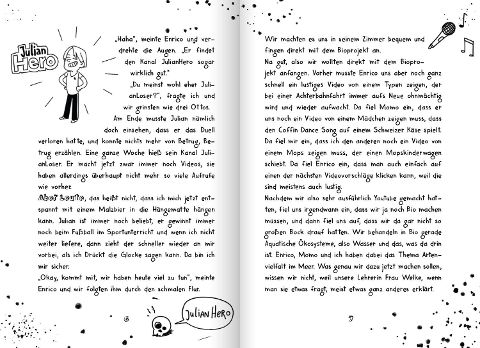 Julian
Hero
„Haha“, meinte Enrico und ver-
drehte die Augen. „Er findet
den Kanal JulianHero sogar
wirklich gut.“
„Du meinst wohl eher Juli-
anLoser?“, fragte ich und
wir grinsten wie drei Ottos.
Am Ende musste Julian nämlich
doch einsehen, dass er das Duell
verloren hatte, und konnte nichts mehr von Betrug, Be-
trug erzählen. Eine ganze Woche hieß sein Kanal Juli-
anLoser. Er macht jetzt zwar immer noch Videos, sie
haben allerdings überhaupt nicht mehr so viele Aufrufe
wie vorher.
das heißt nicht, dass ich mich jetzt ent-
spannt mit einem Malzbier in die Hängematte hängen
kann. Julian ist immer noch beliebt, er gewinnt immer
noch beim Fußball im Sportunterricht und wenn ich nicht
weiter liefere, dann zieht der schneller wieder an mir
vorbei, als ich Drückt die Glocke sagen kann. Da bin ich
mir sicher.
„Okay, kommt mit, wir haben heute viel zu tun“, meinte
Enrico und wir folgten ihm durch den schmalen Flur.
JULIAN HERO
Wir machten es uns in seinem Zimmer bequem und
fingen direkt mit dem Bioprojekt an.
Na gut, also wir wollten direkt mit dem Biopro-
jekt anfangen. Vorher musste Enrico uns aber noch ganz
schnell ein lustiges Video von einem Typen zeigen, der
bei einer Achterbahnfahrt immer aufs Neue ohnmächtig
wird und wieder aufwacht. Da fiel Momo ein, dass er
uns noch ein Video von einem Mädchen zeigen muss, dass
den Coffin Dance Song auf einem Schweizer Käse spielt.
Da fiel mir ein, dass ich den anderen noch ein Video von
einem Mops zeigen muss, der einen Mopskinderwagen
schiebt. Da fiel Enrico ein, dass man auch einfach auf
einen der nächsten Videovorschläge klicken kann, weil die
sind meistens auch lustig.
Nachdem wir also sehr ausführlich Youtube gemacht hat-
ten, fiel uns irgendwann ein, dass wir ja noch Bio machen
müssen, und dann fiel uns auf, dass wir da gar nicht so
großen Bock drauf hatten. Wir behandeln in Bio gerade
Aquatische Ökosysteme, also Wasser und das, was da drin
ist. Enrico, Momo und ich haben dabei das Thema Arten-
vielfalt im Meer. Was genau wir dazu jetzt machen sollen,
wissen wir nicht, weil unsere Lehrerin Frau Welke, wenn
man sie etwas fragt, meist etwas ganz anderes erklärt